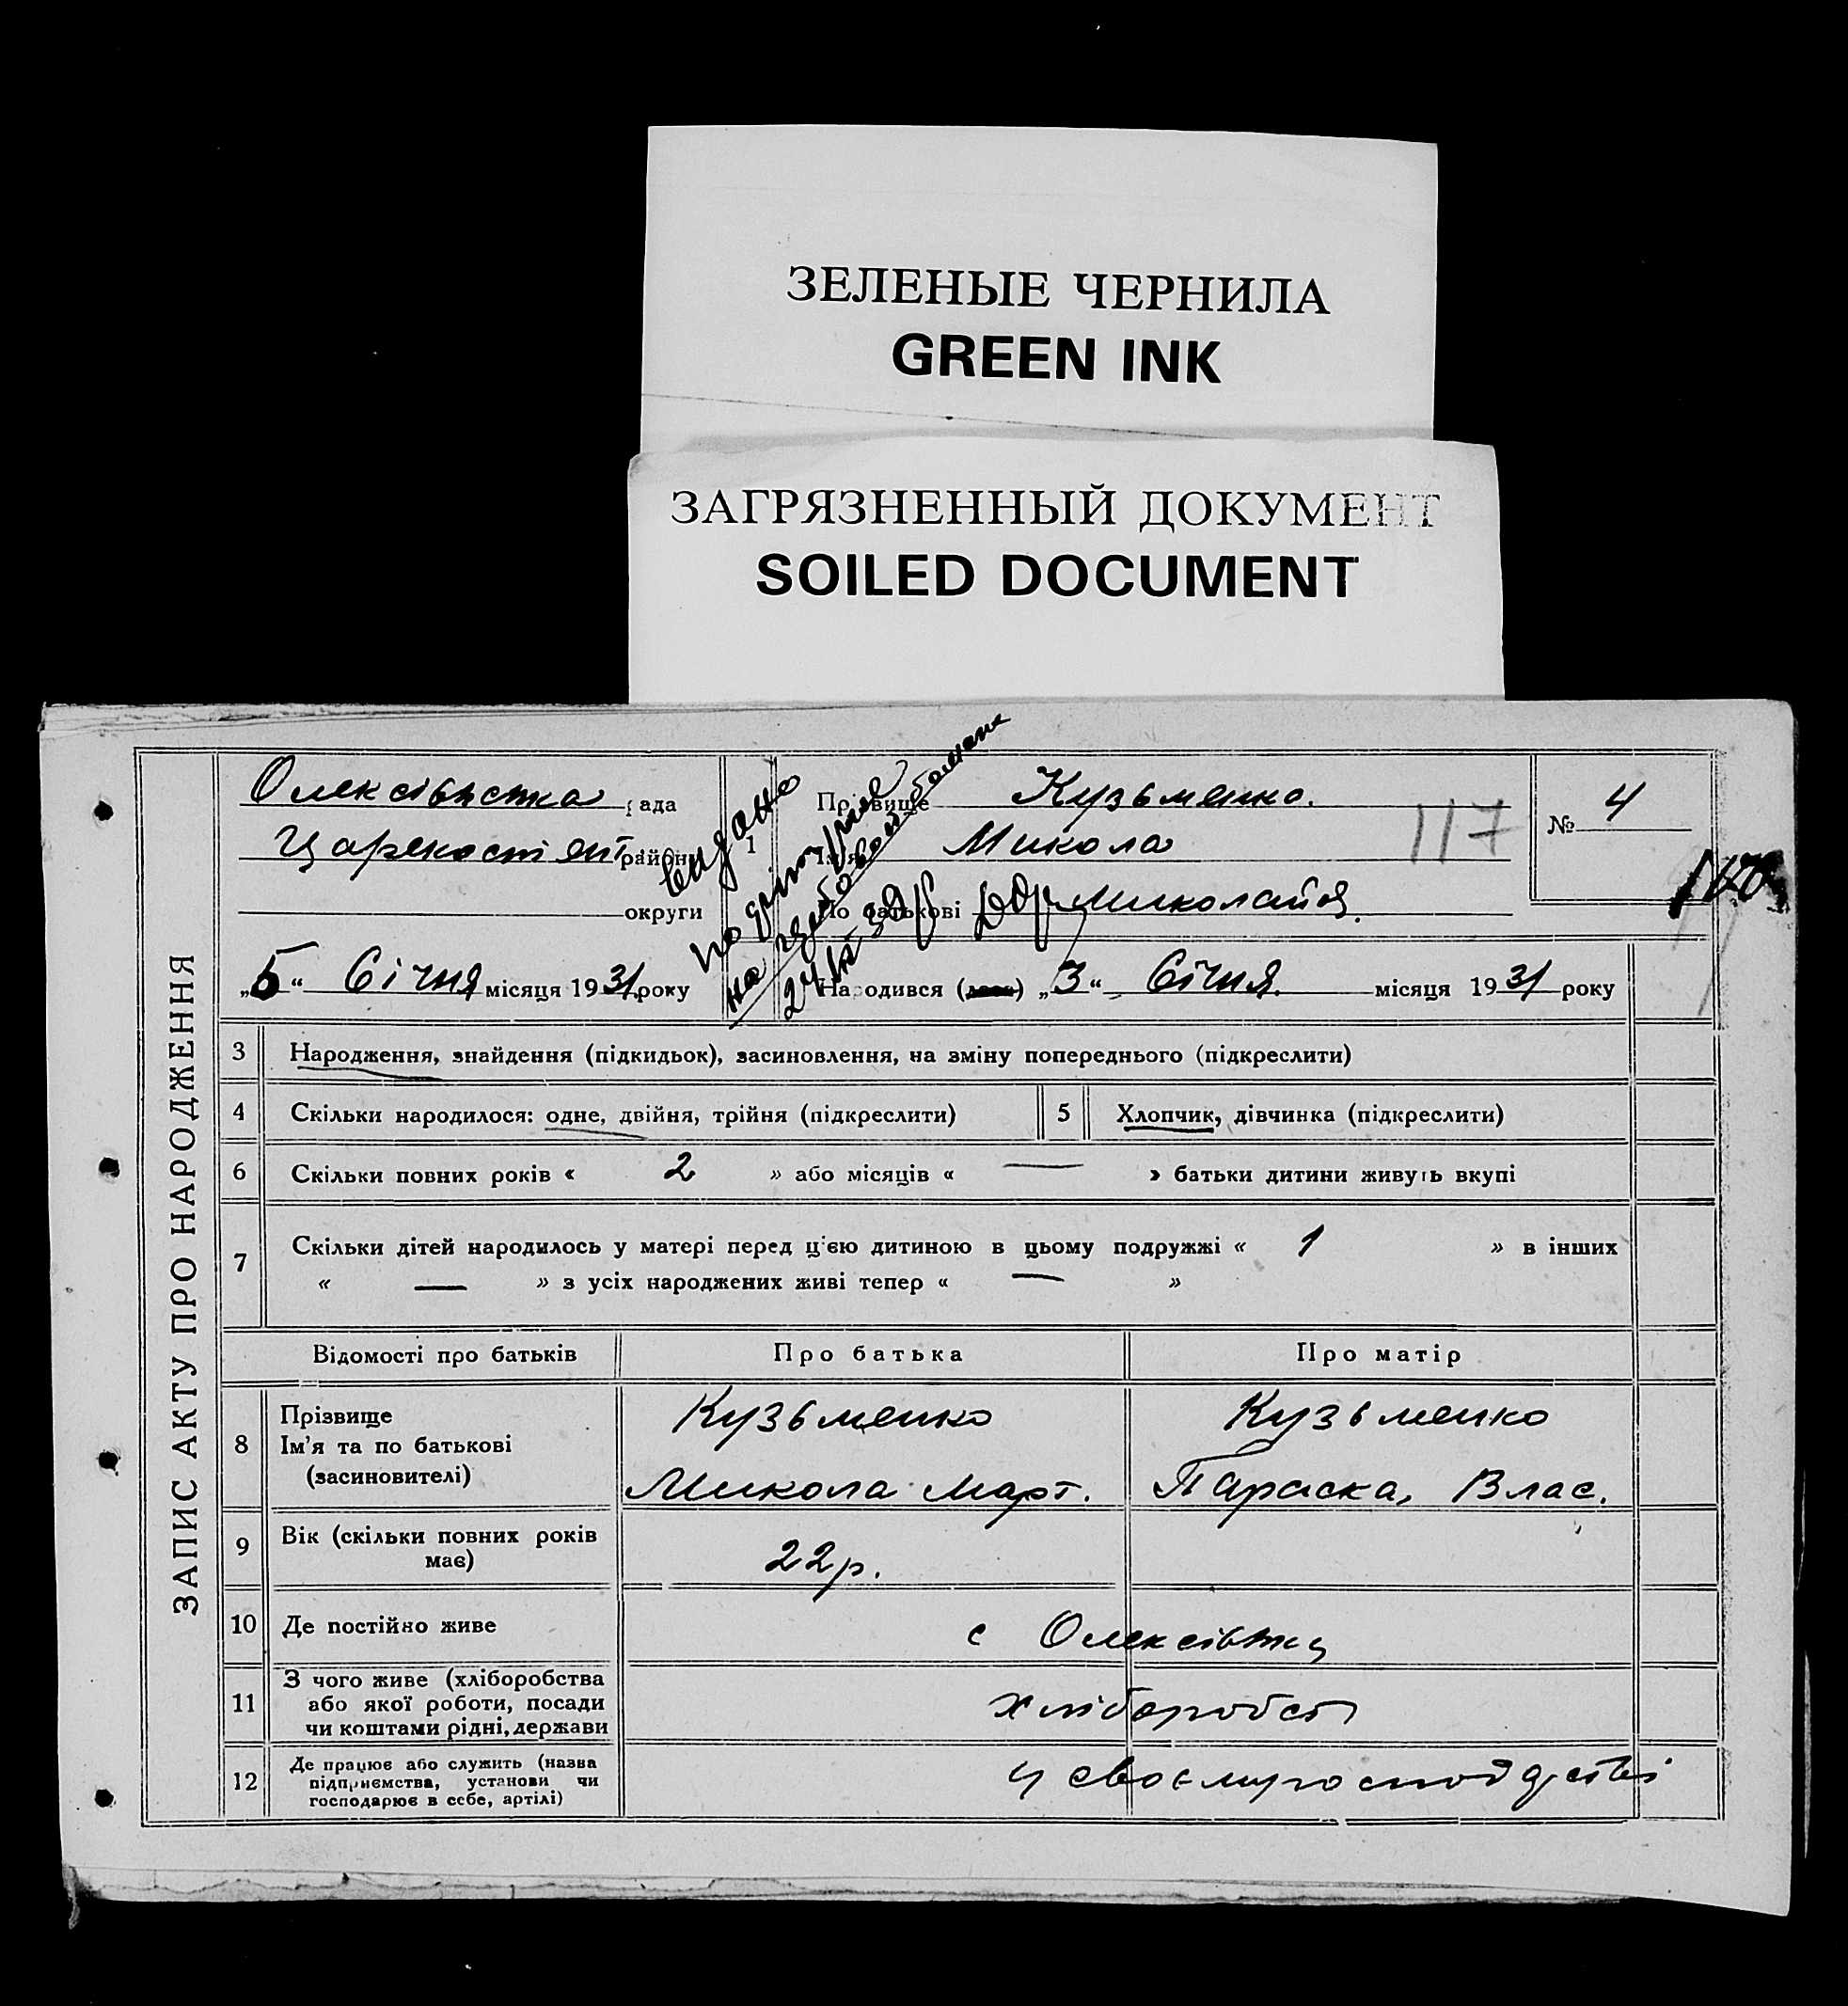 ЗЕЛЕНЫЕ ЧЕРНИЛА
GREEN INK
ЗАГРЯЗНЕННЫЙ ДОКУМЕНТ
SOILED DOCUMENT
ЗАПИС АКТУ ПРО НАРОДЖЕННЯ
рада
району
округи
„5“ Січня місяця 1931 року
видано
1
Прізвище Кузьменко.
Ім'я Микола
По батькові Миколайов.
117
№ 4
Народився „3“ Січня. місяця 1931 року
3 Народження, знайдення (підкидьок), засиновлення, на зміну попереднього (підкреслити)
4 Скільки народилося: одне, двійня, трійня (підкреслити) 5 Хлопчик, дівчинка (підкреслити)
6 Скільки повних років « 2 » або місяців « — » батьки дитини живуть вкупі
7 Скільки дітей народилось у матері перед цією дитиною в цьому подружжі « 1 » в інших
« — » з усіх народжених живі тепер « — »
Відомості про батьків Про батька Про матір
8 Прізвище Кузьменко Кузьменко
Ім'я та по батькові
(засиновителі) Микола Март. Параска, Влас.
9 Вік (скільки повних років
має) 22р.
10 Де постійно живе с Олексієвка
11 З чого живе (хліборобства
або якої роботи, посади
чи коштами рідні, держави хліборобст
12 Де працює або служить (назва
підприємства, установи чи
господарює в себе, артілі) у своєму